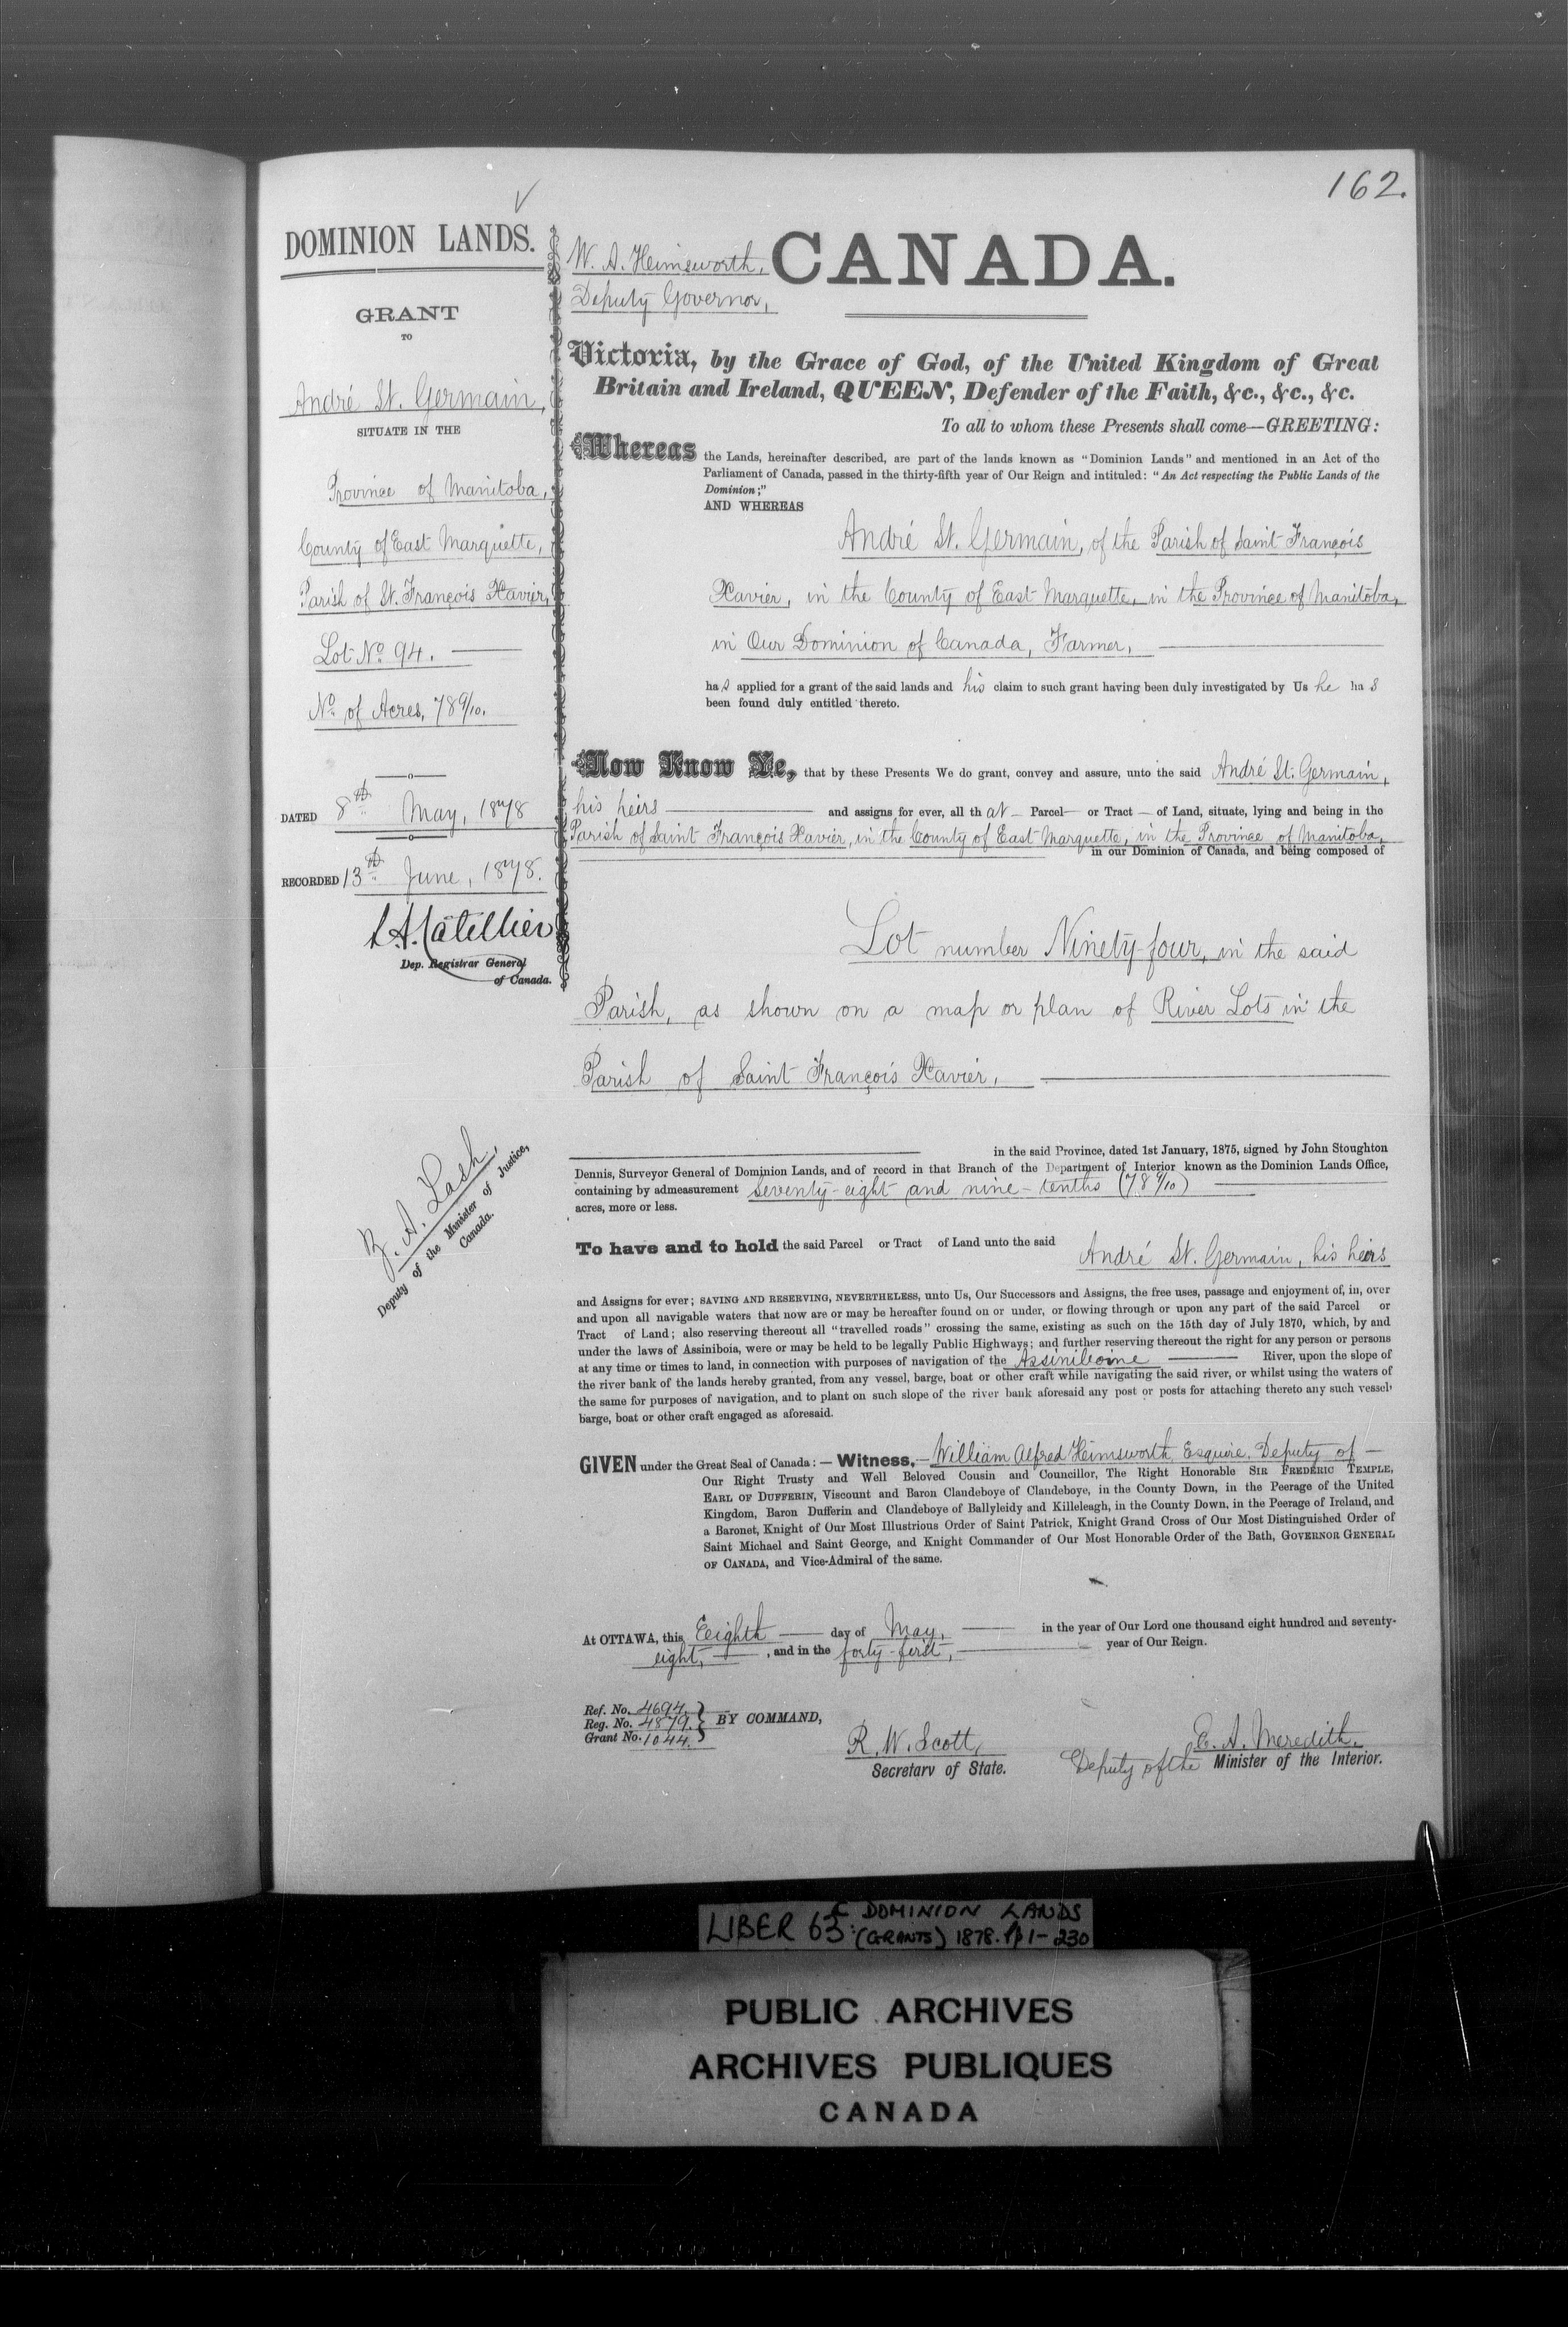 162.
DOMINION LANDS.
GRANT
TO
André St. Germain,
SITUATE IN THE
Province of Manitoba,
County of East Marquette,
Parish of St. François Xavier,
Lot No. 94.
No. of Acres, 78 9/10.
DATED 8th May, 1878
RECORDED 13th June, 1878.
L.A. Catellier
Dep. Registrar General
of Canada.
Z. A. Lash,
Deputy of the Minister of Justice,
Canada.
W. A. Himsworth,
Deputy Governor,
CANADA.
Victoria, by the Grace of God, of the United Kingdom of Great
Britain and Ireland, QUEEN, Defender of the Faith, &c., &c., &c.
To all to whom these Presents shall come—GREETING:
Whereas the Lands, hereinafter described, are part of the lands known as "Dominion Lands" and mentioned in an Act of the
Parliament of Canada, passed in the thirty-fifth year of Our Reign and intituled: "An Act respecting the Public Lands of the
Dominion;"
AND WHEREAS
André St. Germain, of the Parish of Saint François
Xavier, in the County of East Marquette, in the Province of Manitoba,
in Our Dominion of Canada, Farmer,
has applied for a grant of the said lands and his claim to such grant having been duly investigated by Us he has
been found duly entitled thereto.
Now Know Ye, that by these Presents We do grant, convey and assure, unto the said André St. Germain,
his heirs and assigns for ever, all that Parcel or Tract of Land, situate, lying and being in the
Parish of Saint François Xavier, in the County of East Marquette, in the Province of Manitoba,
in our Dominion of Canada, and being composed of
Lot number Ninety-four, in the said
Parish, as shown on a map or plan of River Lots in the
Parish of Saint François Xavier,
in the said Province, dated 1st January, 1875, signed by John Stoughton
Dennis, Surveyor General of Dominion Lands, and of record in that Branch of the Department of Interior known as the Dominion Lands Office,
containing by admeasurement seventy-eight and nine-tenths (78 9/10)
acres, more or less.
To have and to hold the said Parcel or Tract of Land unto the said André St. Germain, his heirs
and Assigns for ever; SAVING AND RESERVING, NEVERTHELESS, unto Us, Our Successors and Assigns, the free uses, passage and enjoyment of, in, over
and upon all navigable waters that now are or may be hereafter found on or under, or flowing through or upon any part of the said Parcel or
Tract of Land; also reserving thereout all "travelled roads" crossing the same, existing as such on the 15th day of July 1870, which, by and
under the laws of Assiniboia, were or may be held to be legally Public Highways; and further reserving thereout the right for any person or persons
at any time or times to land, in connection with purposes of navigation of the Assiniboine River, upon the slope of
the river bank of the lands hereby granted, from any vessel, barge, boat or other craft while navigating the said river, or whilst using the waters of
the same for purposes of navigation, and to plant on such slope of the river bank aforesaid any post or posts for attaching thereto any such vessel,
barge, boat or other craft engaged as aforesaid.
GIVEN under the Great Seal of Canada:—Witness,—William Alfred Himsworth Esquire, Deputy of—
Our Right Trusty and Well Beloved Cousin and Councillor, The Right Honorable SIR FREDERIC TEMPLE,
EARL OF DUFFERIN, Viscount and Baron Clandeboye of Clandeboye, in the County Down, in the Peerage of the United
Kingdom, Baron Dufferin and Clandeboye of Ballyleidy and Killeleagh, in the County Down, in the Peerage of Ireland, and
a Baronet, Knight of Our Most Illustrious Order of Saint Patrick, Knight Grand Cross of Our Most Distinguished Order of
Saint Michael and Saint George, and Knight Commander of Our Most Honorable Order of the Bath, GOVERNOR GENERAL
OF CANADA, and Vice-Admiral of the same.
At OTTAWA, this Eighth day of May, in the year of Our Lord one thousand eight hundred and seventy-
eight, , and in the forty-first, year of Our Reign.
Ref. No. 4694.
Reg. No. 4879.
Grant No. 1044.
BY COMMAND,
R. W. Scott,
Secretary of State.
E. A. Meredith.
Deputy of the Minister of the Interior.
LIBER 63: DOMINION LANDS
(GRANTS) 1878. pp 1-230
PUBLIC ARCHIVES
ARCHIVES PUBLIQUES
CANADA